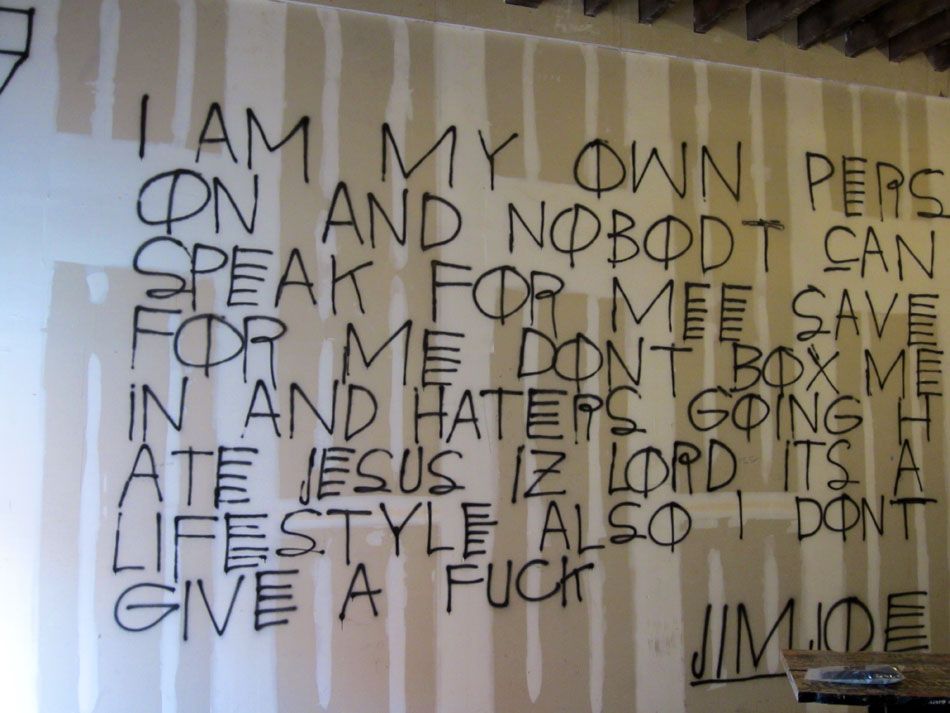 I AM MY OWN PERS
ON AND NOBODT CAN
SPEAK FOR MEE SAVE
FOR ME DONT BOX ME
iN AND HATERS GOING H
ATE JESUS iZ LORD iTS A
LIFESTYLE ALSO I DONT
GIVE A FUCK
JIMJOE